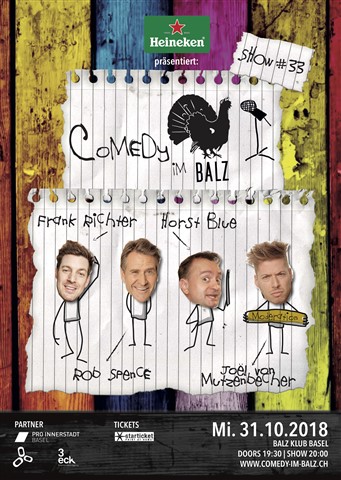 Heineken
präsentiert:
SHOW #33
COMEDY
iM
BALZ
Frank Richter
Horst Blue
Moderation
ROB SPENCE
Joël von
Mutzenbecher
PARTNER
PRO INNERSTADT
BASEL
3
eck
TICKETS
starticket
Mi. 31.10.2018
BALZ KLUB BASEL
DOORS 19:30 | SHOW 20:00
WWW.COMEDY-IM-BALZ.CH